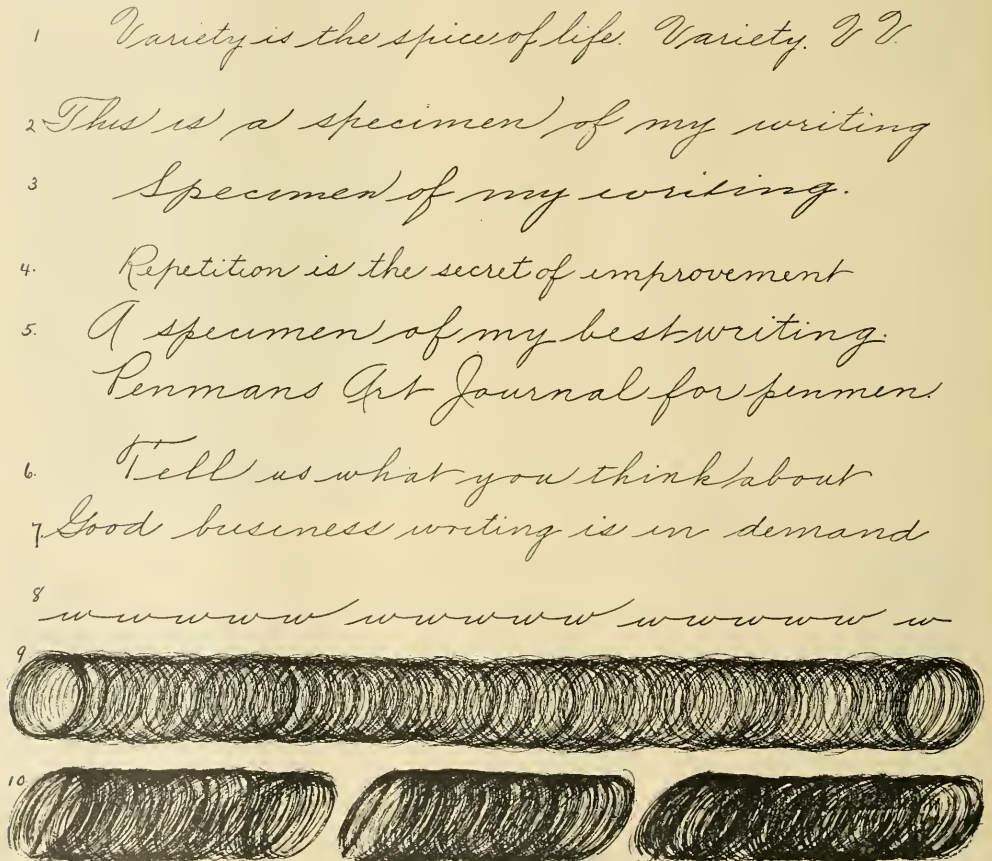 1 Variety is the spice of life. Variety. V V.
2 This is a specimen of my writing
3 Specimen of my writing.
4. Repetition is the secret of improvement
5. A specimen of my best writing.
Penmans Art Journal for penmen.
6. Tell us what you think about
7. Good business writing is in demand
8 wwwwww wwwwww wwwwww w
9
10